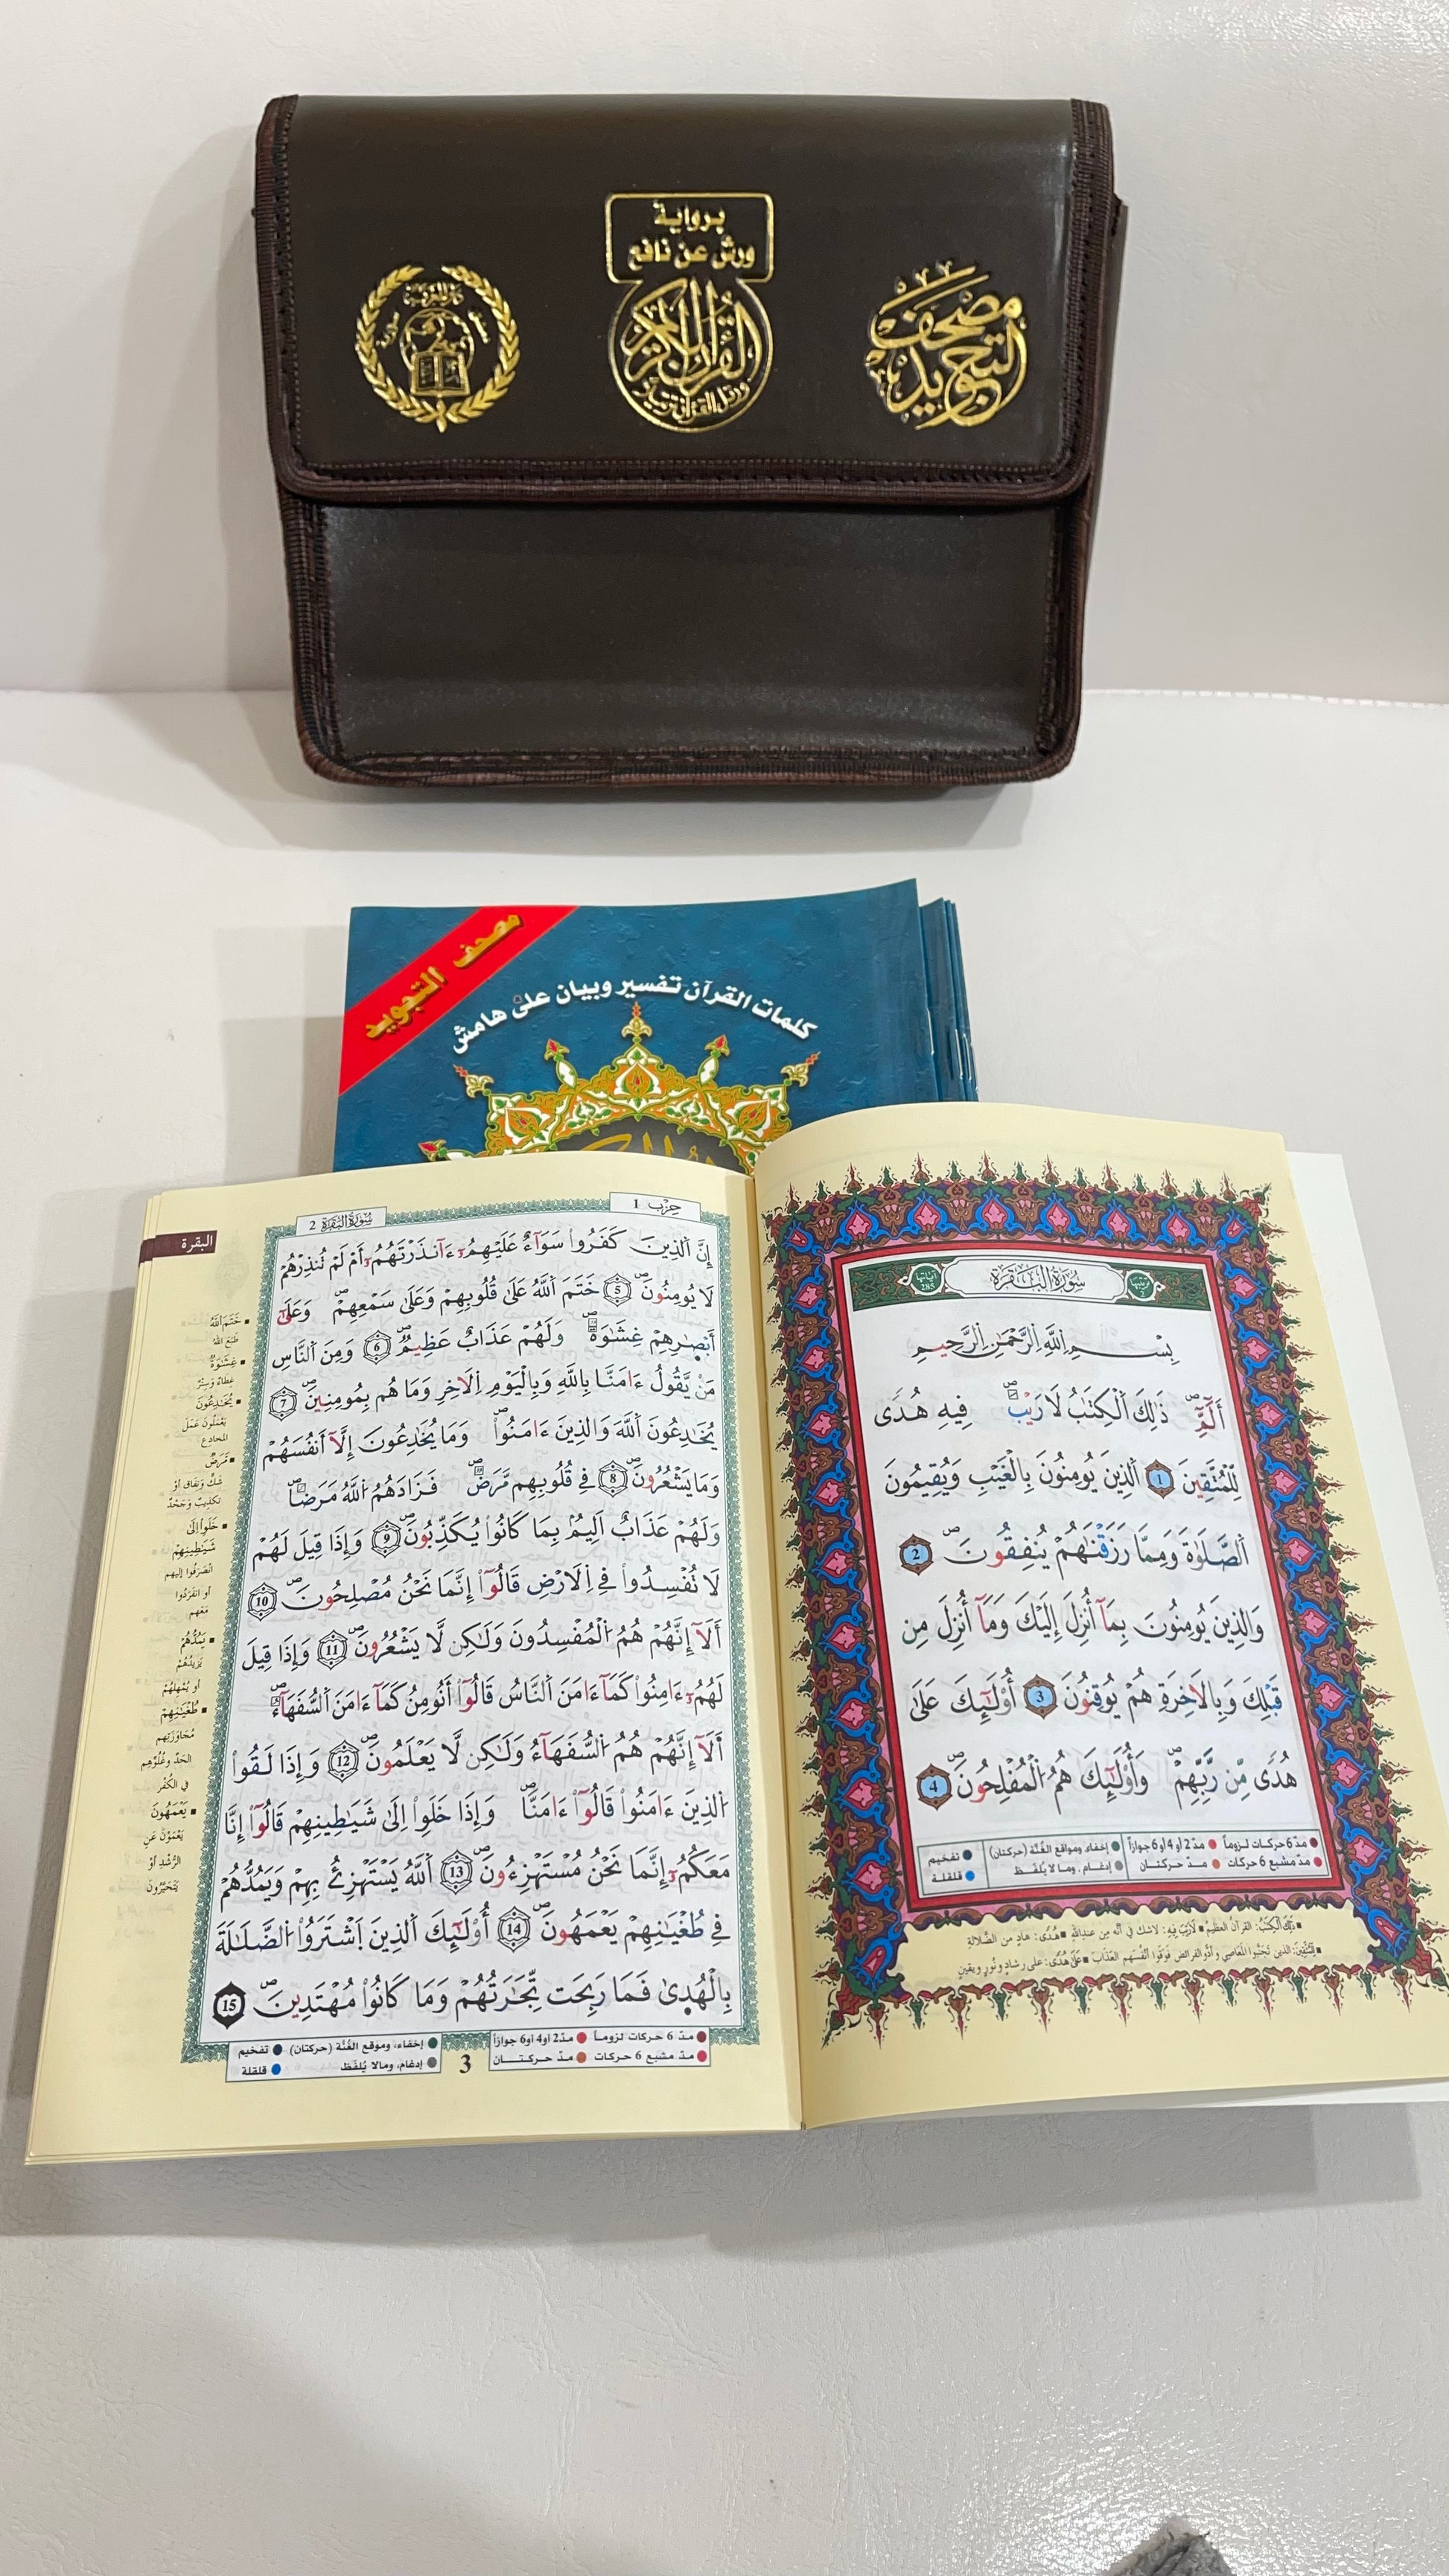 برواية
ورش عن نافع
القرآن الكريم
ورتل القرآن ترتيلا
مصحف
التجويد
دار المعرفة
مصحف التجويد
كلمات القرآن تفسير وبيان على هامش
سُورَةُ البَقَرَةِ
آياتها
285
بِسْمِ اِللَّهِ اِلرَّحْمَٰنِ اِلرَّحِيمِ
أَلَٓمِّٓۖ ذَٰلِكَ اَلْكِتَٰبُ لَا رَيْبَۖ فِيهِ هُدىٗ
لِّلْمُتَّقِينَ 1 اَلذِينَ يُومِنُونَ بِالْغَيْبِ وَيُقِيمُونَ
اَلصَّلَوٰةَ وَمِمَّا رَزَقْنَٰهُمْ يُنفِقُونَۖ 2
وَالذِينَ يُومِنُونَ بِمَآ أُنزِلَ إِلَيْكَ وَمَآ أُنزِلَ مِن
قَبْلِكَ وَبِالَاخِرَةِ هُمْ يُوقِنُونَۖ 3 أُوْلَٰٓئِكَ عَلَىٰ
هُدىٗ مِّن رَّبِّهِمْۖ وَأُوْلَٰٓئِكَ هُمُ اُلْمُفْلِحُونَۖ 4
مدّ 6 حركات لزوماً مدّ 2 أو 4 أو 6 جوازاً إخفاء، ومواقع الغُنَّة (حركتان) تفخيم
مدّ مشبع 6 حركات مدّ حركتان إدغام، وما لا يُلفَظ قلقلة
ذَٰلِكَ اَلْكِتَٰبُ: القرآن العظيم لَا رَيْبَ فِيهِ: لا شك في أنّه من عند الله هُدىً: هادٍ من الضّلالة
لِلْمُتَّقِينَ: الذين تجنّبوا المعاصي وأدّوا الفرائض فوقَوا أنفسهم العذاب عَلَىٰ هُدىً: على رشاد ونور ويقين
حِزْب 1
سُورَةُ البَقَرَةِ 2
البقرة
إِنَّ اَلذِينَ كَفَرُواْ سَوَآءٌ عَلَيْهِمُۥٓ ءَآنذَرْتَهُمُۥٓ أَمْ لَمْ تُنذِرْهُمْ
لَا يُومِنُونَۖ 5 خَتَمَ اَللَّهُ عَلَىٰ قُلُوبِهِمْ وَعَلَىٰ سَمْعِهِمْۖ وَعَلَىٰٓ
أَبْصٰ۪رِهِمْ غِشَٰوَةٞۖ وَلَهُمْ عَذَابٌ عَظِيمٞۖ 6 وَمِنَ اَلنَّاسِ
مَنْ يَّقُولُ ءَامَنَّا بِاللَّهِ وَبِالْيَوْمِ اِلَاخِرِ وَمَا هُم بِمُومِنِينَۖ 7
يُخَٰدِعُونَ اَللَّهَ وَالذِينَ ءَامَنُواْۖ وَمَا يُخَٰدِعُونَ إِلَّآ أَنفُسَهُمْ
وَمَا يَشْعُرُونَۖ 8 فِي قُلُوبِهِم مَّرَضٞۖ فَزَادَهُمُ اُللَّهُ مَرَضاٗۖ
وَلَهُمْ عَذَابٌ اَلِيمُۢ بِمَا كَانُواْ يُكَذِّبُونَۖ 9 وَإِذَا قِيلَ لَهُمْ
لَا تُفْسِدُواْ فِي اِلَارْضِ قَالُوٓاْ إِنَّمَا نَحْنُ مُصْلِحُونَۖ 10
أَلَآ إِنَّهُمْ هُمُ اُلْمُفْسِدُونَ وَلَٰكِن لَّا يَشْعُرُونَۖ 11 وَإِذَا قِيلَ
لَهُمُۥٓ ءَامِنُواْ كَمَآ ءَامَنَ اَلنَّاسُ قَالُوٓاْ أَنُومِنُ كَمَآ ءَامَنَ اَلسُّفَهَآءُۖ
أَلَآ إِنَّهُمْ هُمُ اُلسُّفَهَآءُ وَلَٰكِن لَّا يَعْلَمُونَۖ 12 وَإِذَا لَقُواْ
اُلذِينَ ءَامَنُواْ قَالُوٓاْ ءَامَنَّاۖ وَإِذَا خَلَوِاْ اِلَىٰ شَيَٰطِينِهِمْ قَالُوٓاْ إِنَّا
مَعَكُمُۥٓ إِنَّمَا نَحْنُ مُسْتَهْزِءُونَۖ 13 اَللَّهُ يَسْتَهْزِئُ بِهِمْ وَيَمُدُّهُمْ
فِي طُغْيَٰنِهِمْ يَعْمَهُونَۖ 14 أُوْلَٰٓئِكَ اَلذِينَ اَشْتَرَوُاْ اُلضَّلَٰلَةَ
بِالْهُد۪ىٰ فَمَا رَبِحَت تِّجَٰرَتُهُمْ وَمَا كَانُواْ مُهْتَدِينَۖ 15
خَتَمَ اَللَّهُ
طَبَعَ الله
غِشَٰوَةٌ
غِطَاءٌ وَسِتْرٌ
يُخَٰدِعُونَ
يَعْمَلُونَ عَمَلَ
المخادِع
مَرَضٌ
شَكٌّ وَنِفَاق أوْ
تَكْذِيبٌ وَجَحْدٌ
خَلَوِاْ اِلَىٰ
شَيَٰطِينِهِمْ
انْصَرَفُوا إليهم
أو انْفَرَدُوا
مَعَهم
يَمُدُّهُمْ
يَزِيدُهُمْ
أو يُمْهِلُهُمْ
طُغْيَٰنِهِمْ
مُجَاوَزَتِهم
الحَدَّ وغُلُوِّهِم
في الكُفْر
يَعْمَهُونَ
يَعْمَوْنَ عَن
الرُّشْدِ أوْ
يَتَحَيَّرُونَ
مدّ 6 حركات لزوماً مدّ 2 أو 4 أو 6 جوازاً إخفاء، وموقع الغُنَّة (حركتان) تفخيم
مدّ مشبع 6 حركات مدّ حركتان 3 إدغام، وما لا يُلفَظ قلقلة